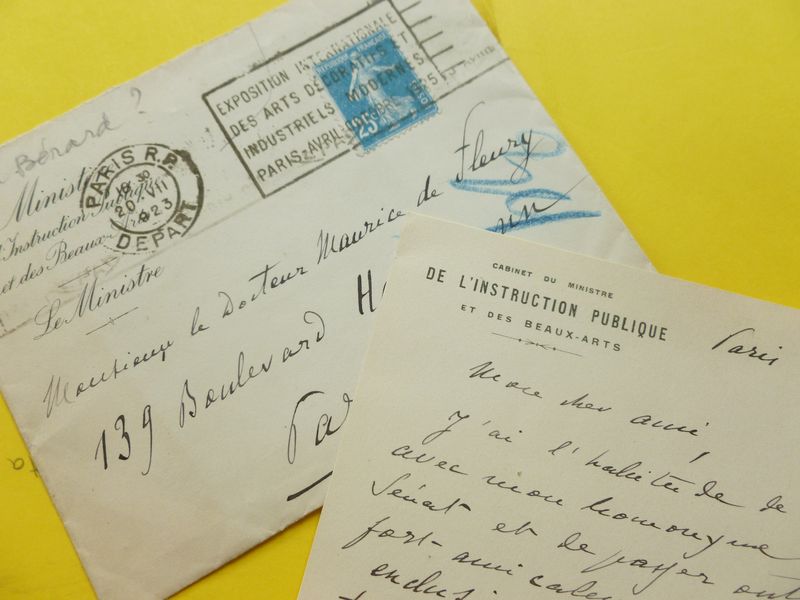 Bérard ?
Ministère
l'Instruction Publique
et des Beaux-Arts
Le Ministre
PARIS R.P.
18 30
20 VII
1923
DEPART
EXPOSITION INTERNATIONALE
DES ARTS DÉCORATIFS ET
INDUSTRIELS MODERNES
PARIS AVRIL 1925
RÉPUBLIQUE FRANÇAISE
25c
Monsieur le Docteur Maurice de Fleury
139 Boulevard
CABINET DU MINISTRE
DE L'INSTRUCTION PUBLIQUE
ET DES BEAUX-ARTS
Paris
Mon cher ami,
J'ai l'habitude de
avec mon homonyme
Sénat et de passer
fort